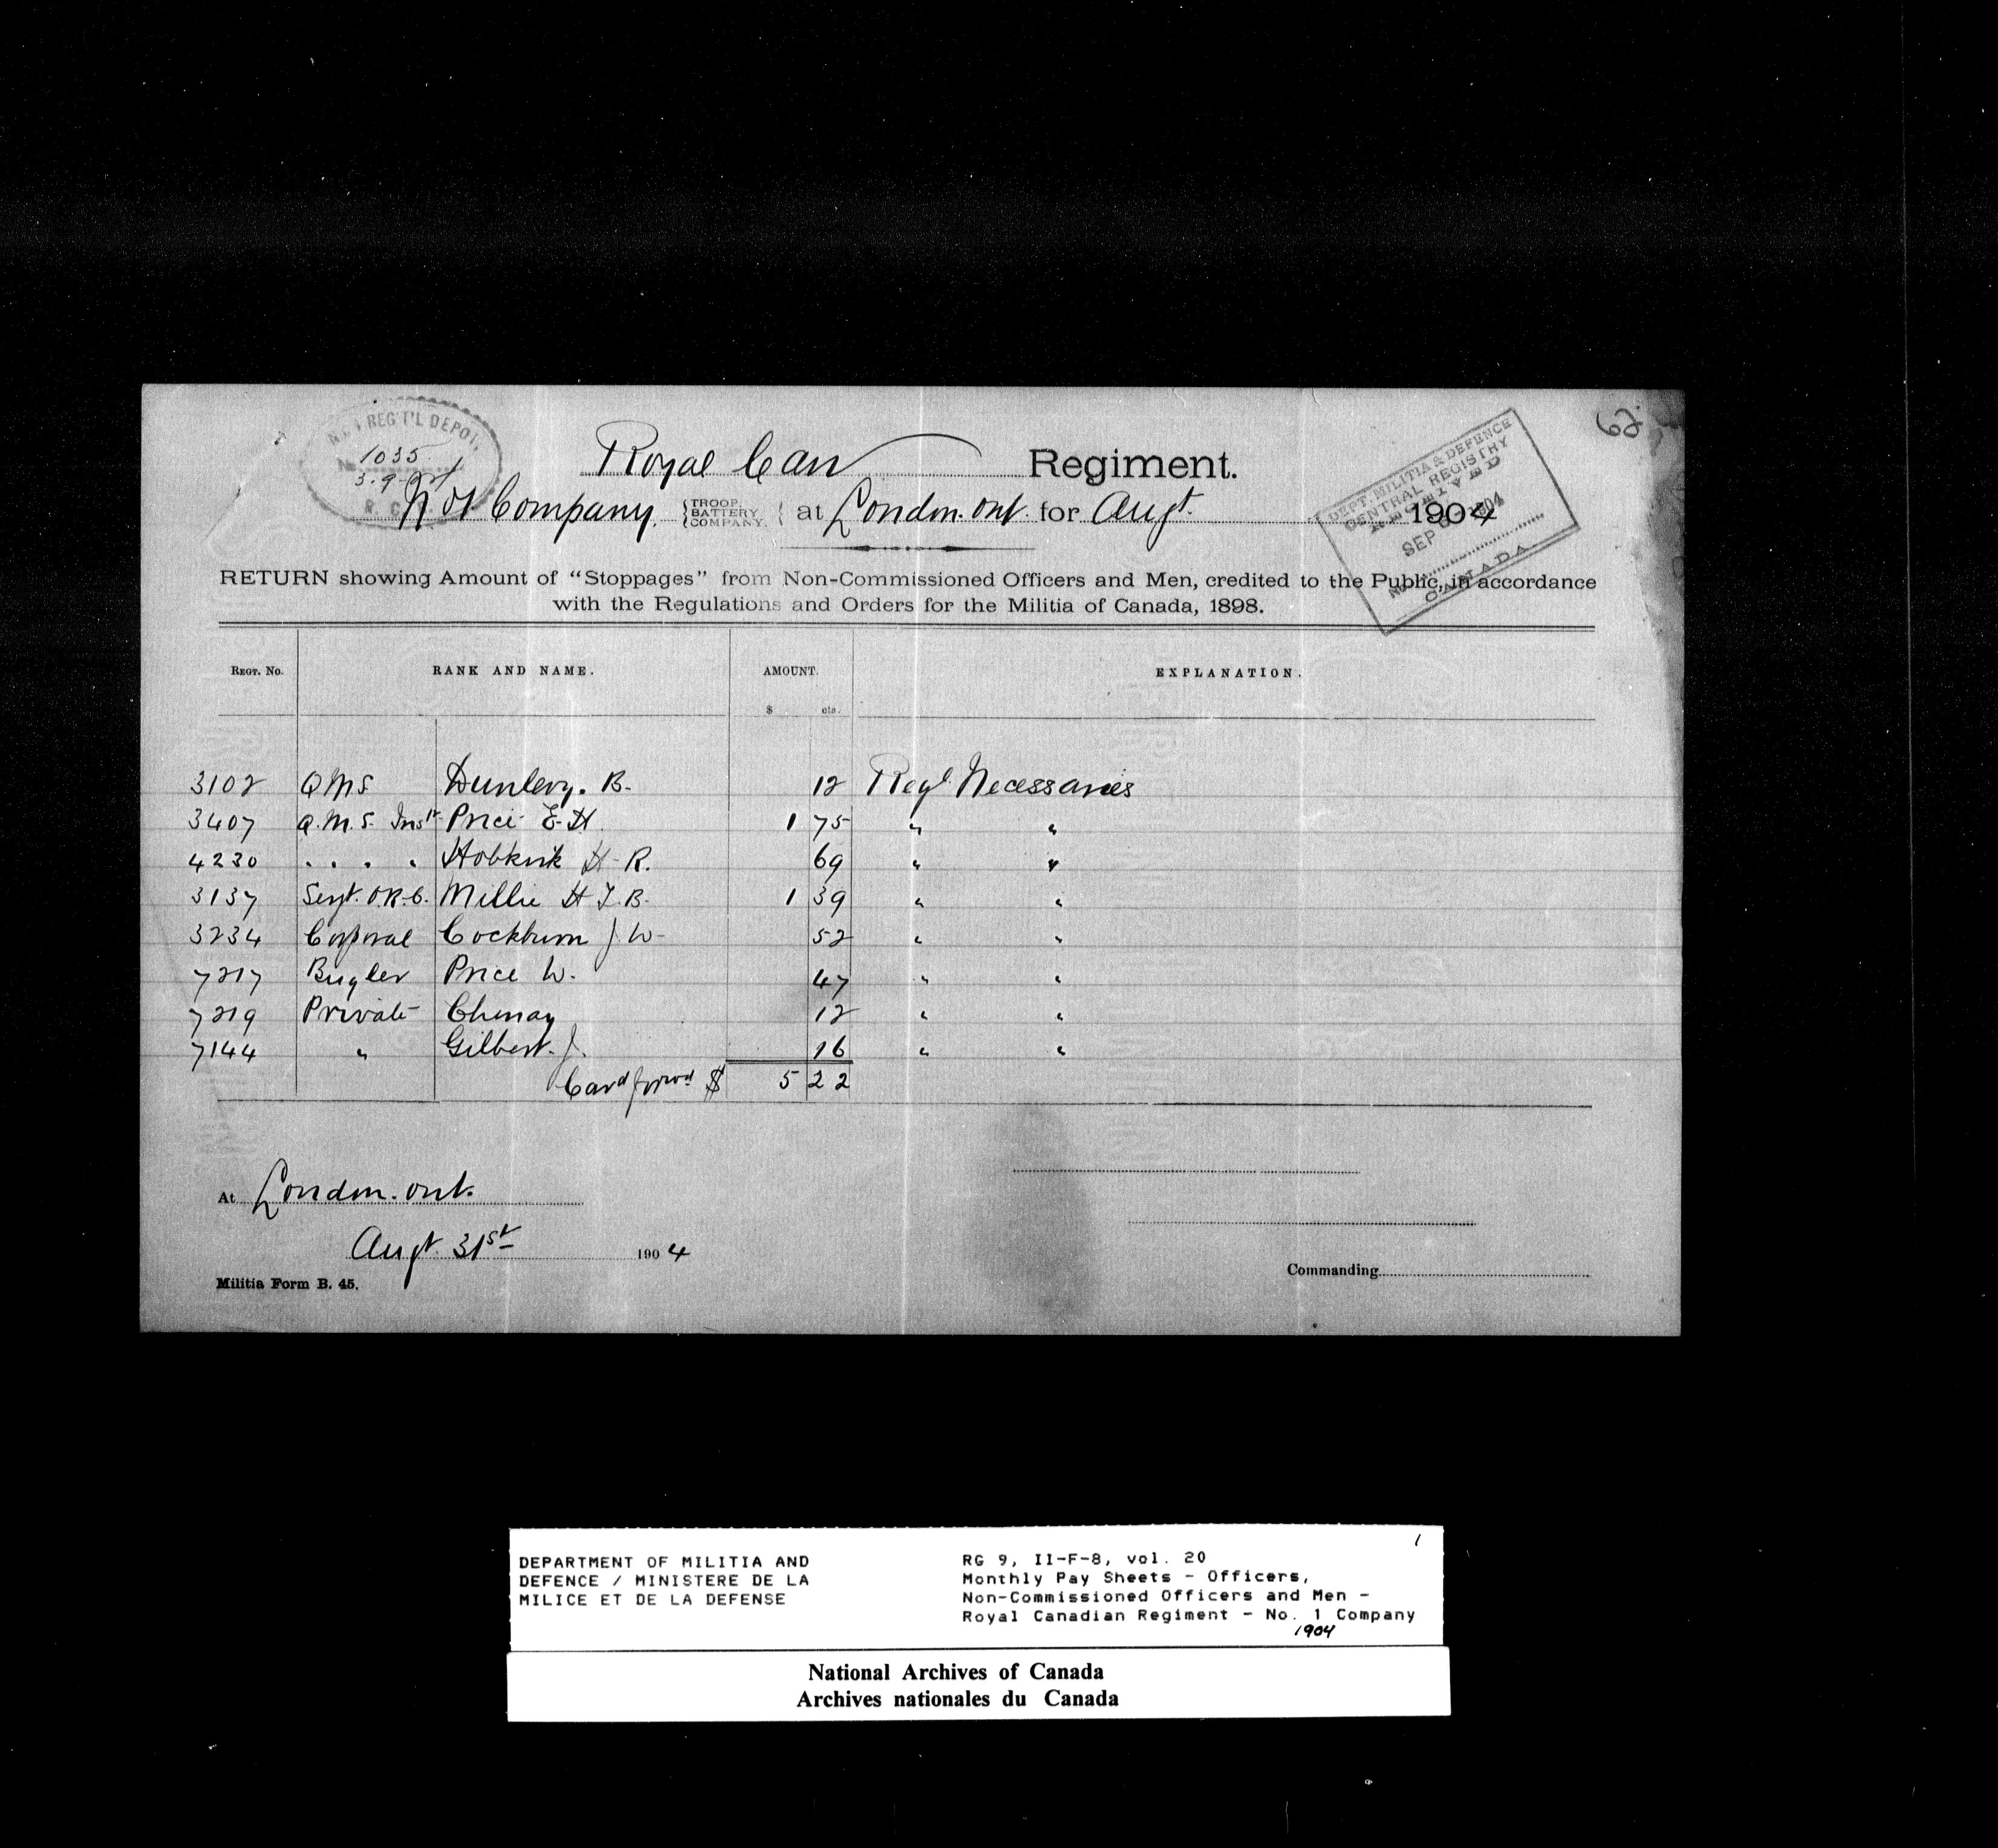 62
No 1 REG'T'L DEPOT.
1035
3-9-04
R. C.
Royal Can Regiment.
No 1 Company. {TROOP, BATTERY, COMPANY.} at London. Ont. for Augt. 1904
DEPT. MILITIA & DEFENCE
CENTRAL REGISTRY
RECEIVED
SEP 1904
CANADA
RETURN showing Amount of "Stoppages" from Non-Commissioned Officers and Men, credited to the Public, in accordance
with the Regulations and Orders for the Militia of Canada, 1898.
REGT. NO. RANK AND NAME. AMOUNT. EXPLANATION.
$ cts.
3102 QMS Dunlevy. B. 12 Regl Necessaries
3407 Q.M.S. Instr Price E. H. 1 75 " "
4230 " " " " Hobkirk H. R. 69 " "
3137 Sergt. O.R.C. Millie H T. B. 1 39 " "
3234 Corporal Cockburn J. W. 52 " "
7217 Bugler Price W. 47 " "
7219 Private Chenay 12 " "
7144 " Gilbert. J. 16 " "
Card forwd $ 5 22
At London. Ont.
Augt. 31st 1904
Commanding
Militia Form B. 45.
1
DEPARTMENT OF MILITIA AND
DEFENCE / MINISTERE DE LA
MILICE ET DE LA DEFENSE
RG 9, II-F-8, vol. 20
Monthly Pay Sheets - Officers,
Non-Commissioned Officers and Men -
Royal Canadian Regiment - No. 1 Company
1904
National Archives of Canada
Archives nationales du Canada